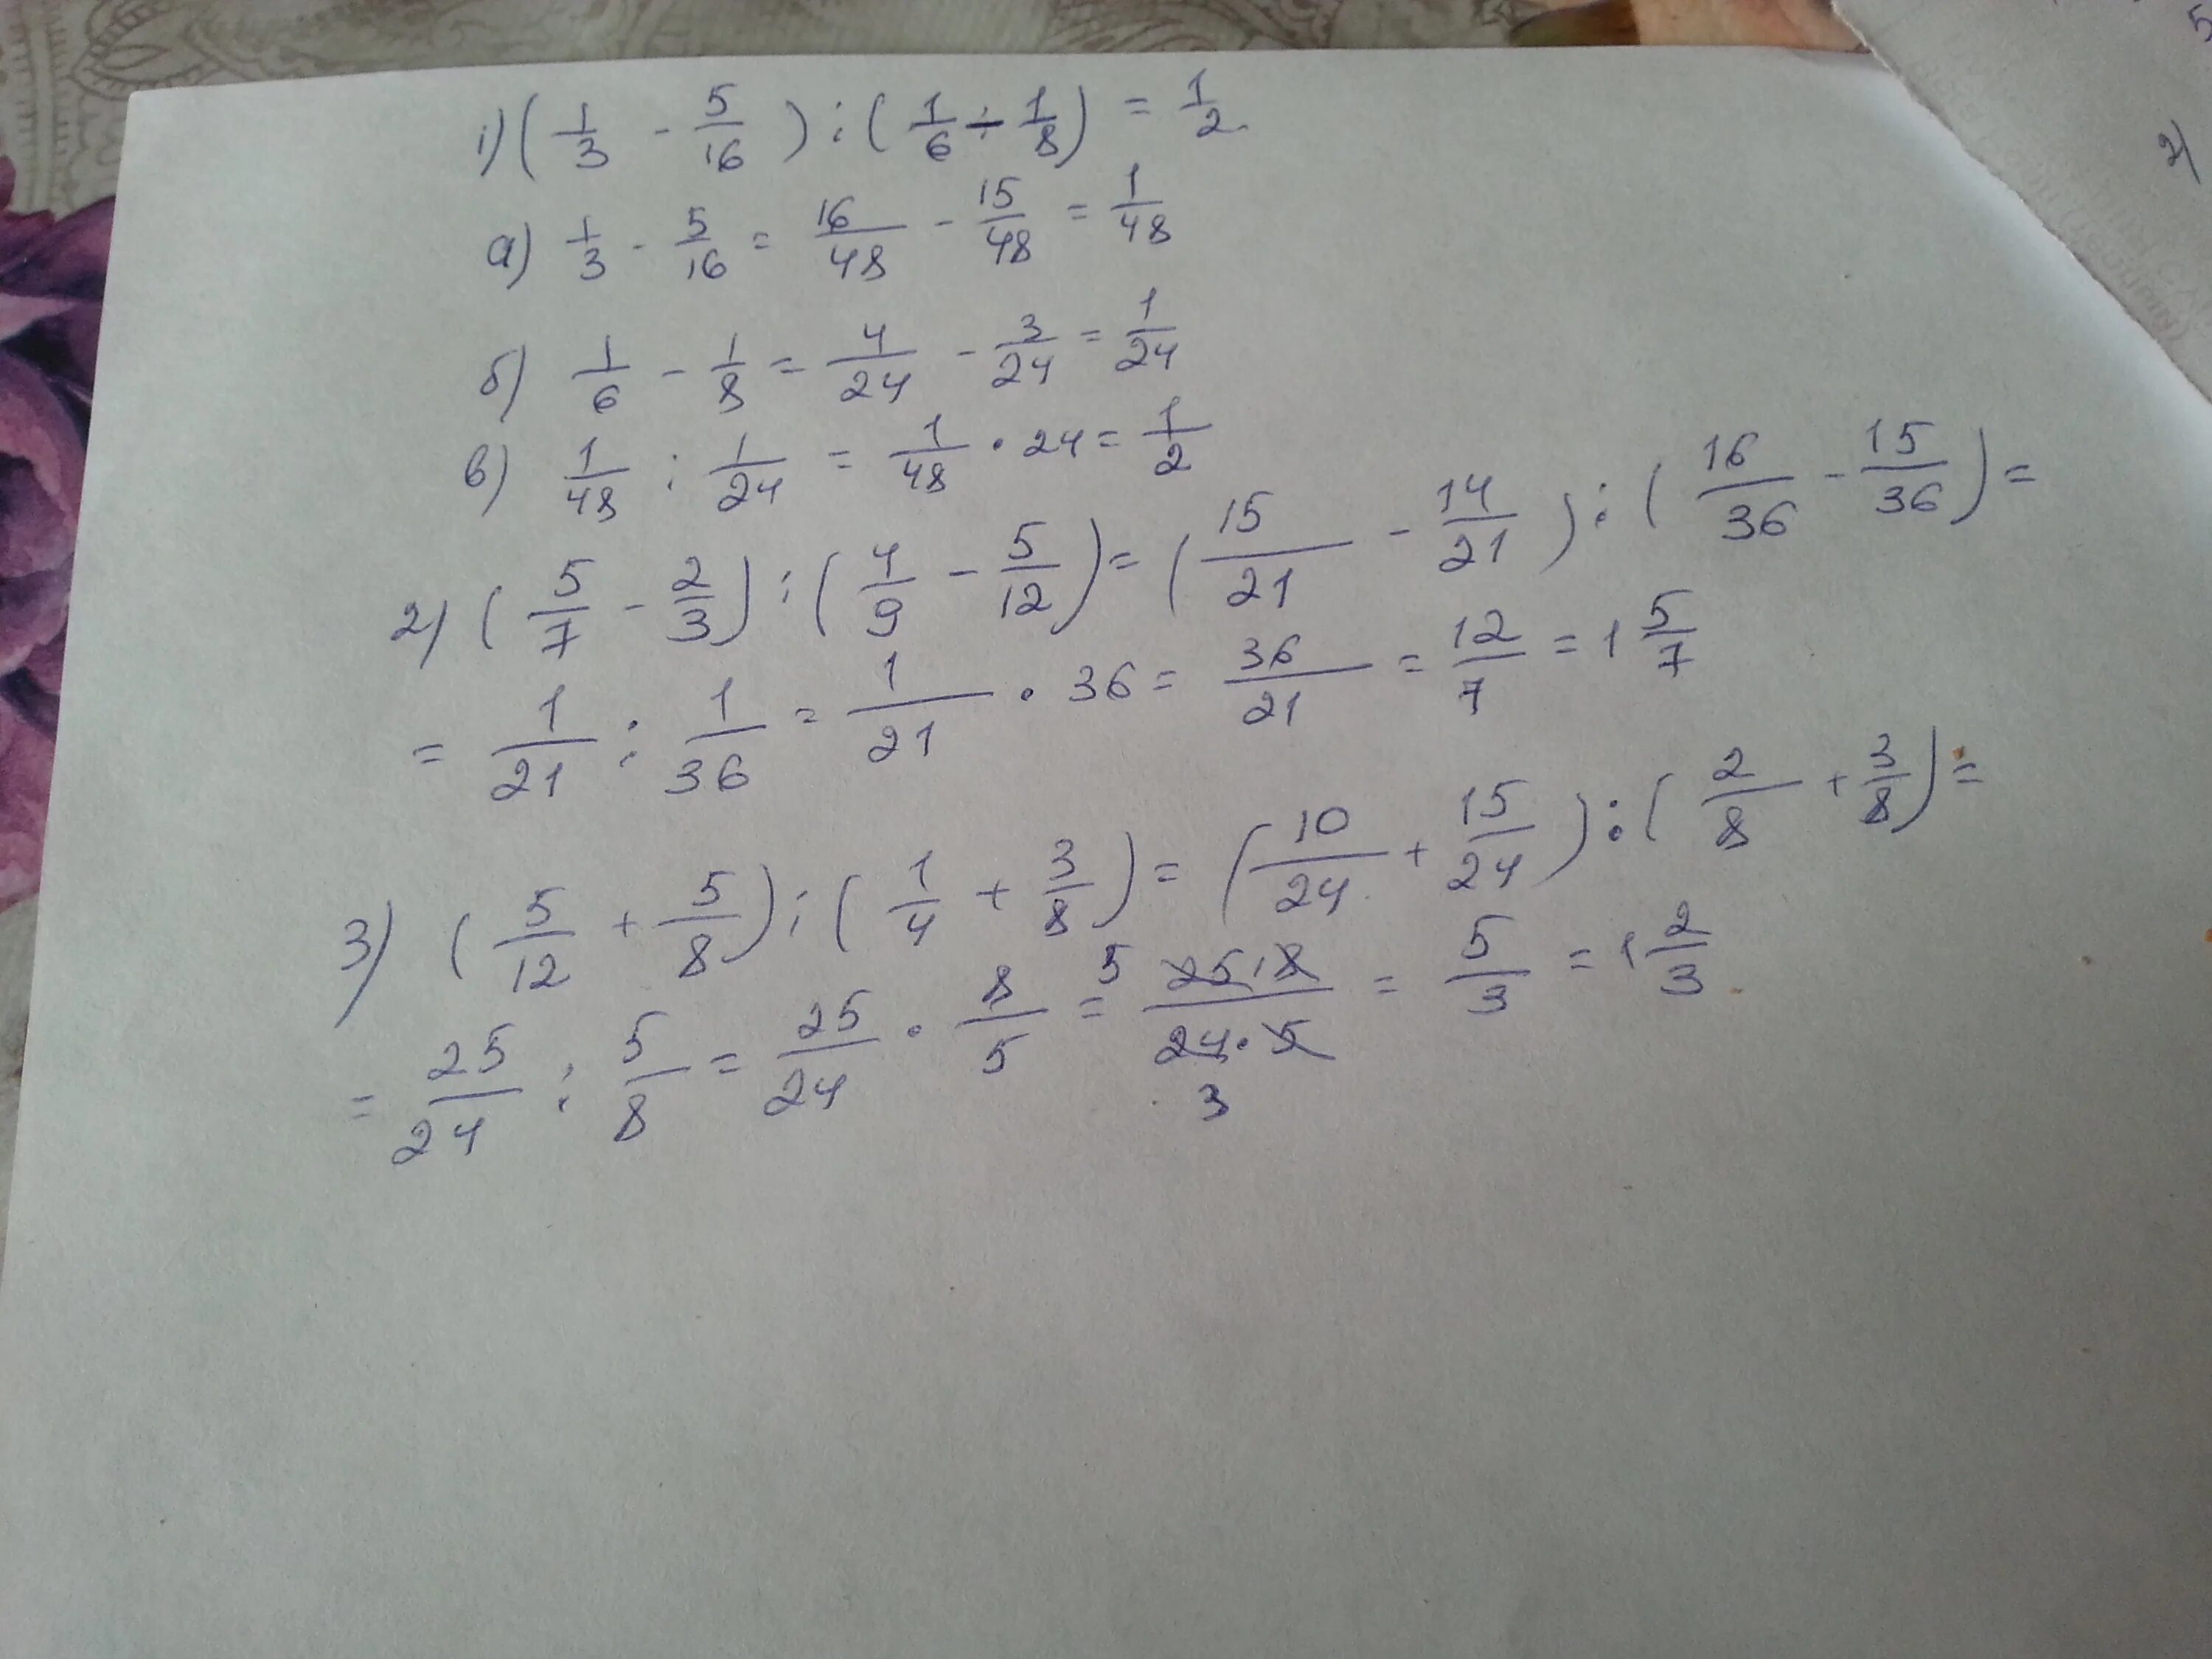 1) (1/3 - 5/16) : (1/6 - 1/8) = 1/2
а) 1/3 - 5/16 = 16/48 - 15/48 = 1/48
б) 1/6 - 1/8 = 4/24 - 3/24 = 1/24
в) 1/48 : 1/24 = 1/48 · 24 = 1/2
2) (5/7 - 2/3) : (4/9 - 5/12) = (15/21 - 14/21) : (16/36 - 15/36) =
= 1/21 : 1/36 = 1/21 · 36 = 36/21 = 12/7 = 1 5/7
3) (5/12 + 5/8) : (1/4 + 3/8) = (10/24 + 15/24) : (2/8 + 3/8) =
= 25/24 : 5/8 = 25/24 · 8/5 = 5 25·8/24·5 3 = 5/3 = 1 2/3
5
2)